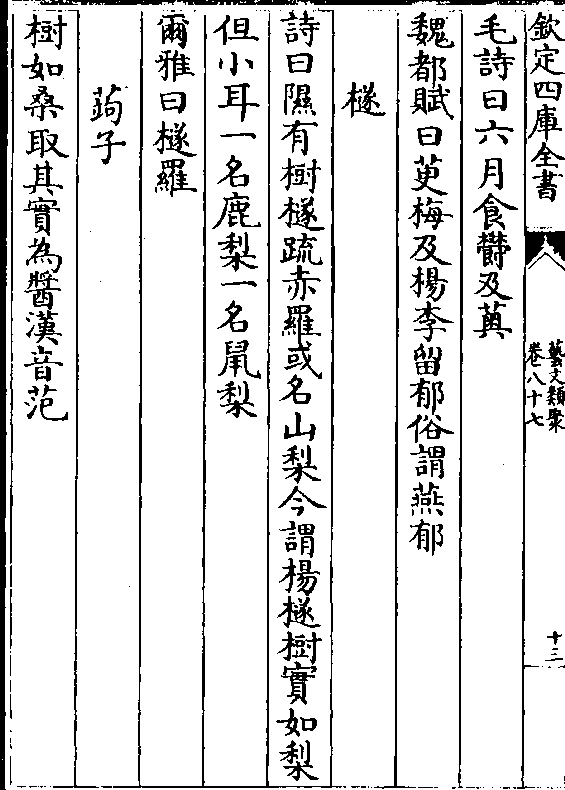 欽定四庫全書
藝文類聚
卷八十七
十三
毛詩曰六月食欝及薁
魏都賦曰萸梅及楊李留郁俗謂燕郁
檖
詩曰隰有樹檖疏赤羅或名山梨今謂楊檖樹實如梨
但小耳一名鹿梨一名鼠梨
爾雅曰檖羅
蒟子
樹如桑取其實為醬漢音范